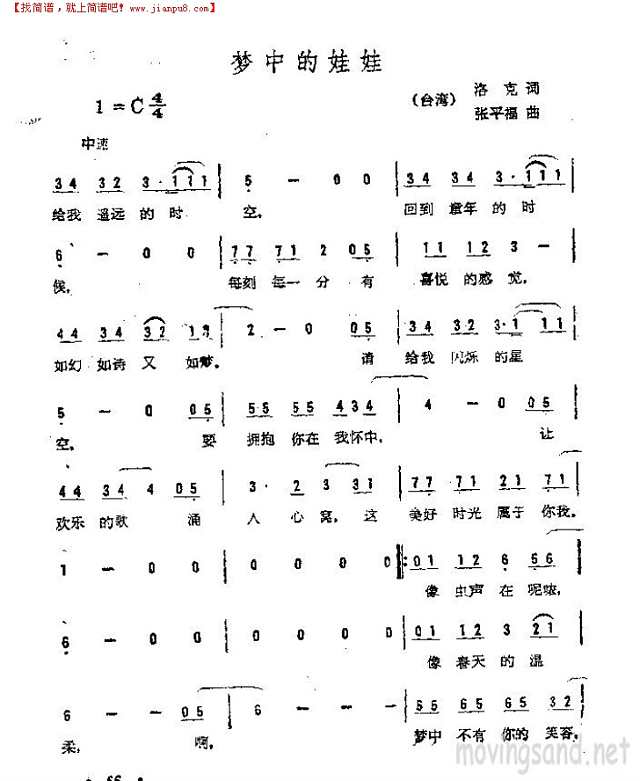 【找简谱，就上简谱吧! www.jianpu8.com】
梦中的娃娃
1=C 4/4
(台湾) 洛克 词
张平福 曲
中速
3 4 3 2 3 · 1 1 1 | 5 - 0 0 | 3 4 3 4 3 · 1 1 1
给我 遥远 的 时 空。 回到 童年 的 时
6 - 0 0 | 7 7 7 1 2 0 5 | 1 1 1 2 3 -
候， 每刻 每一 分 有 喜悦 的感 觉，
4 4 3 4 3 2 1 · | 2 - 0 0 5 | 3 4 3 2 3 · 1 1 1
如幻 如诗 又 如梦。 请 给我 闪烁 的星
5 - 0 0 5 | 5 5 5 5 4 3 4 | 4 - 0 0 5
空， 要 拥抱 你在 我怀中， 让
4 4 3 4 4 0 5 | 3 · 2 3 3 1 | 7 7 7 1 2 1 7 1
欢乐 的歌 涌 人 心 窝，这 美好 时光 属于 你我。
1 - 0 0 | 0 0 0 0 | 0 0 0 0 |: 0 1 1 2 6 5 6
像 虫声 在 呢哝，
6 - 0 0 | 0 0 0 0 | 0 1 1 2 3 2 1
像 春天 的 温
6 - - 0 5 | 6 - - - | 6 5 6 5 6 5 3 2
柔， 啊。 梦中 不有 你的 笑容。
· 66 ·
movingsand.net